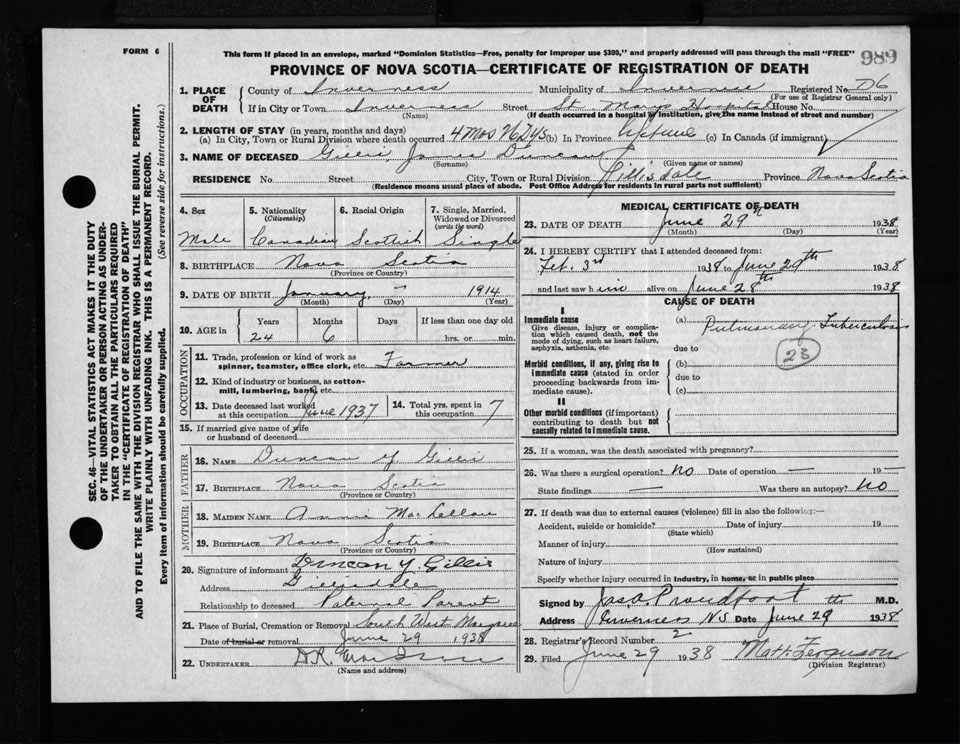 FORM 6
This form if placed in an envelope, marked "Dominion Statistics—Free, penalty for improper use $300," and properly addressed will pass through the mail "FREE"
989
PROVINCE OF NOVA SCOTIA—CERTIFICATE OF REGISTRATION OF DEATH
1. PLACE OF DEATH County of Inverness Municipality of Inverness Registered No. D6
(For use of Registrar General only)
If in City or Town Inverness Street St Marys Hospital House No.
(Name) (If death occurred in a hospital or institution, give the name instead of street and number)
2. LENGTH OF STAY (in years, months and days)
(a) In City, Town or Rural Division where death occurred 4 Mos 26 Dys (b) In Province Lifetime (c) In Canada (if immigrant)
3. NAME OF DECEASED Gillis Duncan
(Surname) (Given name or names)
RESIDENCE No. Street City, Town or Rural Division Gillisdale Province Nova Scotia
(Residence means usual place of abode. Post Office Address for residents in rural parts not sufficient)
4. Sex Male
5. Nationality (Citizenship) Canadian
6. Racial Origin Scottish
7. Single, Married, Widowed or Divorced (write the word) Single
8. BIRTHPLACE Nova Scotia
(Province or Country)
9. DATE OF BIRTH January – 1914
(Month) (Day) (Year)
10. AGE in Years Months Days If less than one day old
24 6 hrs. or min.
OCCUPATION
11. Trade, profession or kind of work as spinner, teamster, office clerk, etc. Farmer
12. Kind of industry or business, as cotton-mill, lumbering, bank, etc.
13. Date deceased last worked at this occupation June 1937
14. Total yrs. spent in this occupation 7
15. If married give name of wife or husband of deceased
FATHER
16. NAME Duncan Y. Gillis
17. BIRTHPLACE Nova Scotia
(Province or Country)
MOTHER
18. MAIDEN NAME Annie MacLellan
19. BIRTHPLACE Nova Scotia
(Province or Country)
20. Signature of informant Duncan Y Gillis
Address Gillisdale
Relationship to deceased Paternal Parent
21. Place of Burial, Cremation or Removal South West Margaree
Date of burial or removal June 29 1938
22. UNDERTAKER D.R.
(Name and address)
MEDICAL CERTIFICATE OF DEATH
23. DATE OF DEATH June 29th 1938
(Month) (Day) (Year)
24. I HEREBY CERTIFY that I attended deceased from:
Feb. 3rd 1938 to June 29th 1938
and last saw him alive on June 28th 1938
CAUSE OF DEATH
I
Immediate cause
Give disease, injury or complication which caused death, not the mode of dying, such as heart failure, asphyxia, asthenia, etc.
(a) Pulmonary Tuberculosis
due to
23
Morbid conditions, if any, giving rise to immediate cause (stated in order proceeding backwards from immediate cause).
(b)
due to
(c)
II
Other morbid conditions (if important) contributing to death but not causally related to immediate cause.
25. If a woman, was the death associated with pregnancy?
26. Was there a surgical operation? No Date of operation — 19 —
State findings — Was there an autopsy? No
27. If death was due to external causes (violence) fill in also the following:—
Accident, suicide or homicide? Date of injury 19
(State which)
Manner of injury
(How sustained)
Nature of injury
Specify whether injury occurred in industry, in home, or in public place
Signed by Jas. A Proudfoot M.D.
Address Inverness N.S Date June 29th 1938
28. Registrar's Record Number 2
29. Filed June 29 1938 Matt. Ferguson
(Division Registrar)
SEC. 46—VITAL STATISTICS ACT MAKES IT THE DUTY
OF THE UNDERTAKER OR PERSON ACTING AS UNDER-
TAKER TO OBTAIN ALL THE PARTICULARS REQUIRED
IN THE "CERTIFICATE OF REGISTRATION OF DEATH"
AND TO FILE THE SAME WITH THE DIVISION REGISTRAR WHO SHALL ISSUE THE BURIAL PERMIT.
WRITE PLAINLY WITH UNFADING INK. THIS IS A PERMANENT RECORD.
Every item of information should be carefully supplied. (See reverse side for instructions.)